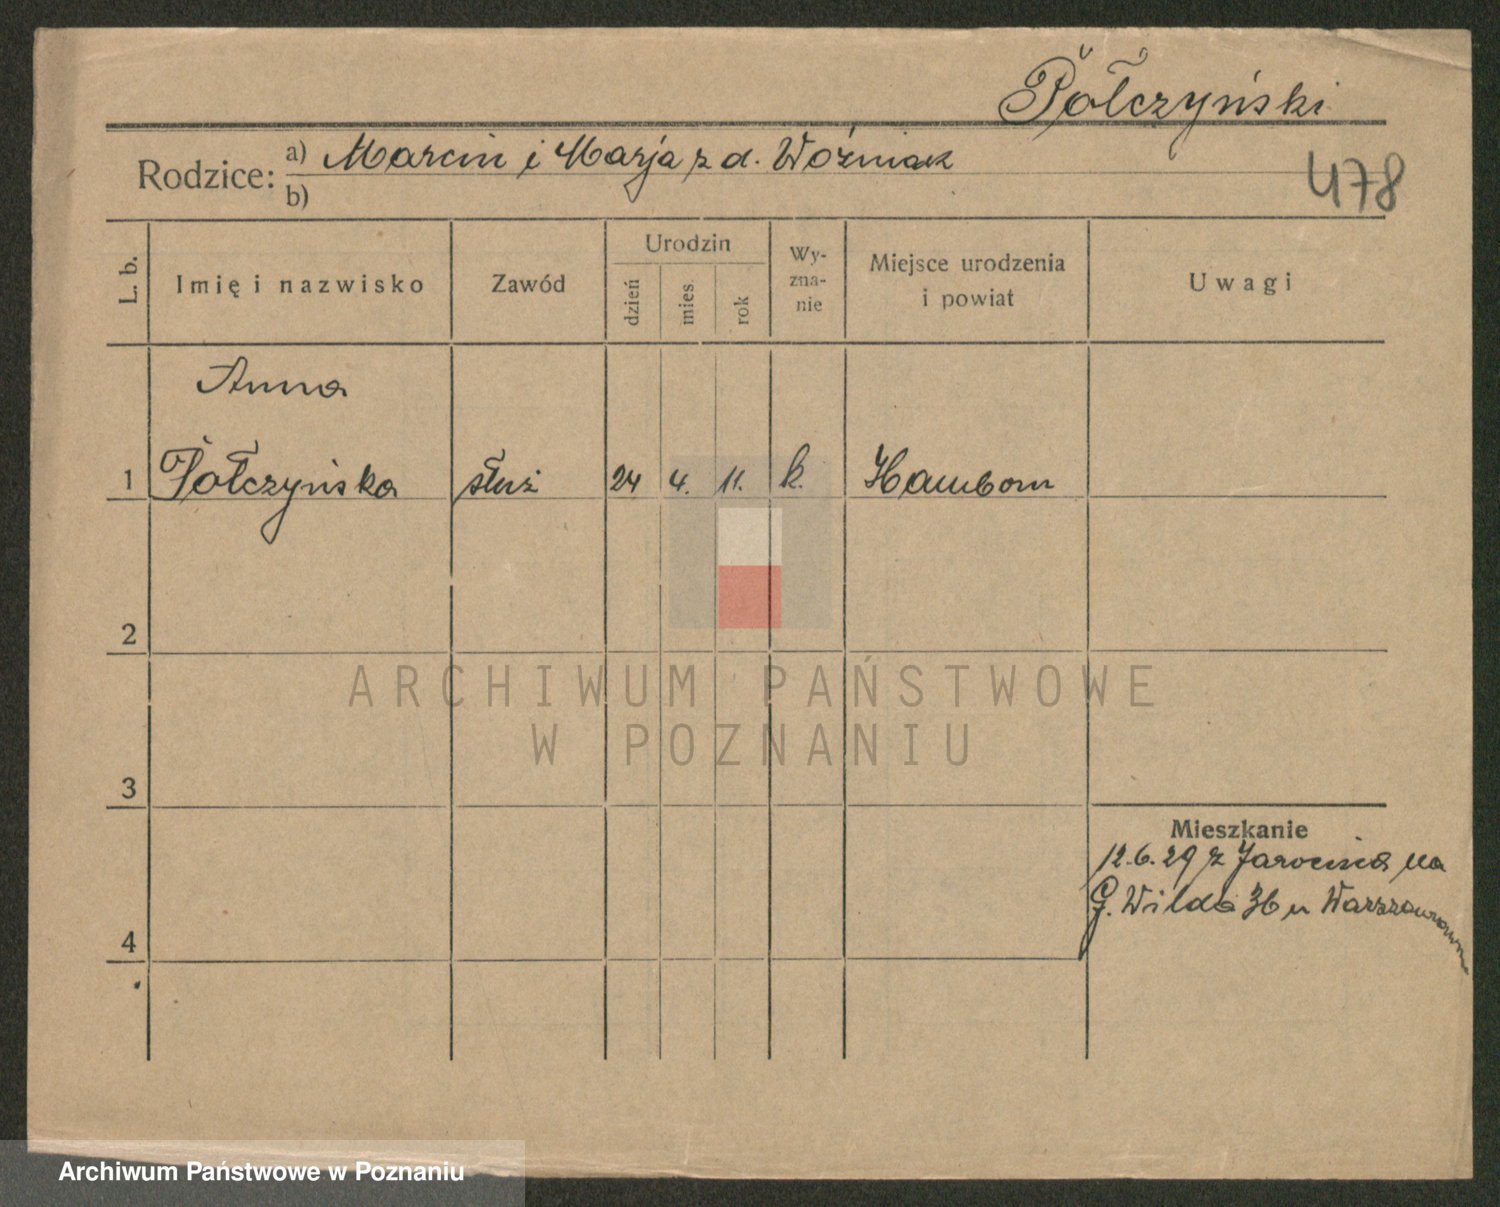 Połczyński
Rodzice: a) Marcin i Marja z d. Woźniak
b)
478
L. b.
Imię i nazwisko
Zawód
Urodzin
dzień
mies
rok
Wy-
zna-
nie
Miejsce urodzenia
i powiat
Uwagi
Anna
1 Połczyńska służ 24 4. 11. k. Hamborn
2
3
4
Mieszkanie
12.6.29 z Jarocina na
G. Wilda 36 u
ARCHIWUM PAŃSTWOWE
W POZNANIU
Archiwum Państwowe w Poznaniu